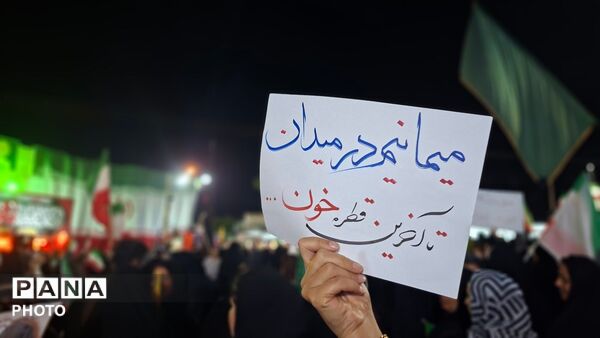 میمانیم در میدان
تا آخرین قطره خون ...
PANA
PHOTO